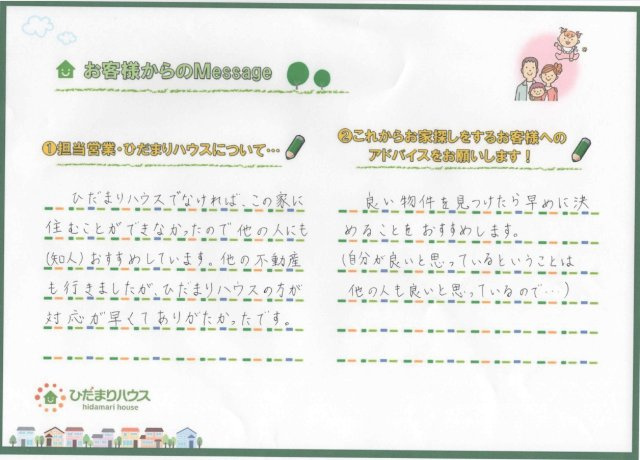 お客様からのMessage
①担当営業・ひだまりハウスについて…
ひだまりハウスでなければ、この家に
住むことができなかったので他の人にも
(知人)おすすめしています。他の不動産
も行きましたが、ひだまりハウスの方が
対応が早くてありがたかったです。
②これからお家探しをするお客様への
アドバイスをお願いします！
良い物件を見つけたら早めに決
めることをおすすめします。
(自分が良いと思っているということは
他の人も良いと思っているので…)
ひだまりハウス
hidamari house